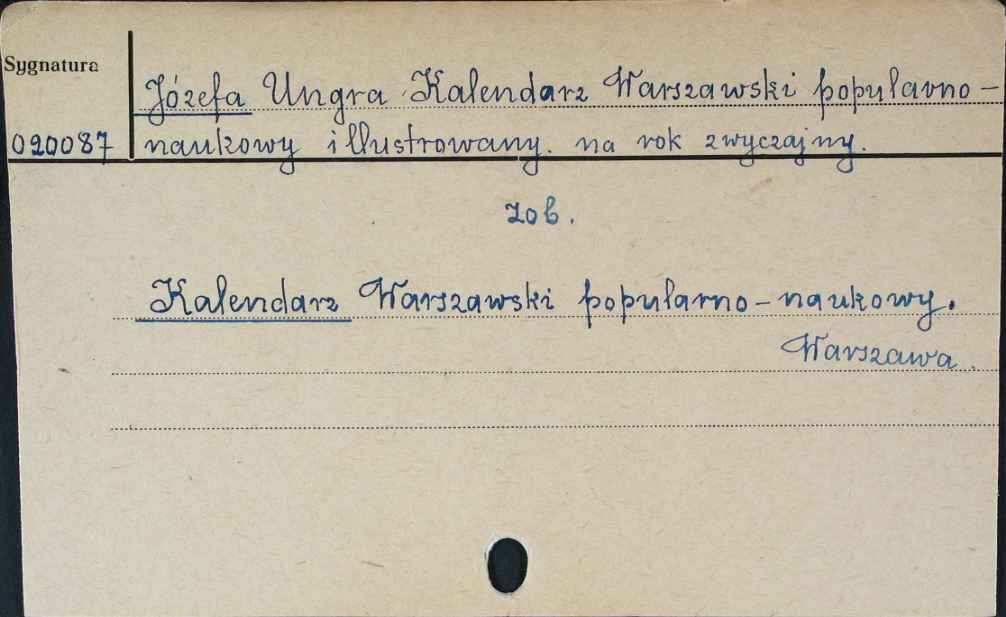 Sygnatura
Józefa Ungra Kalendarz Warszawski popularno-
020087 naukowy illustrowany. na rok zwyczajny.
zob.
Kalendarz Warszawski popularno-naukowy.
Warszawa.